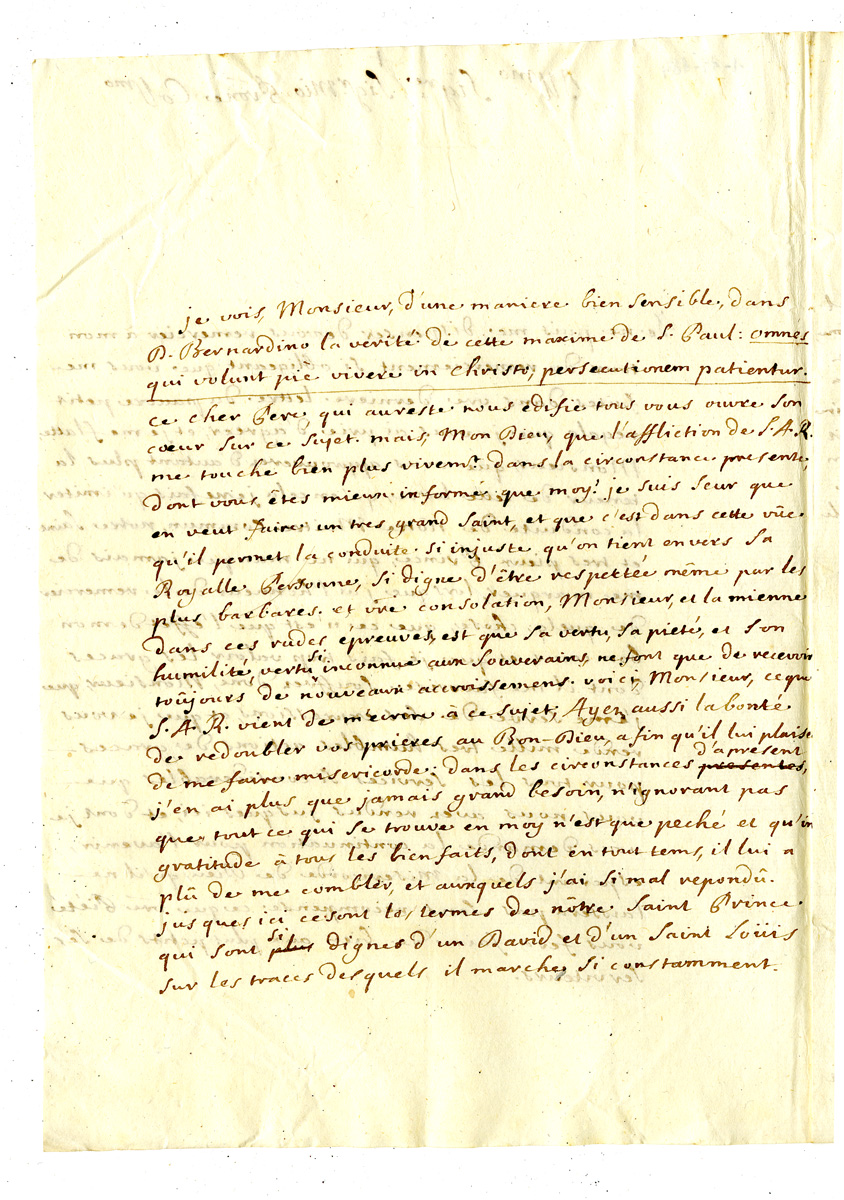 je vois, Monsieur, d'une maniere bien sensible, dans
D. Bernardino la verité de cette maxime de S. Paul: omnes
qui volunt piè vivere in Christo, persecutionem patientur.
ce cher Pere qui au reste nous édifie tous vous ouvre son
cœur sur ce sujet. mais, Mon Dieu, que l'affliction de S. A. R.
me touche bien plus vivemt. dans la circonstance presente,
dont vous êtes mieux informé que moy! je suis seur que
en veut faire un tres grand saint, et que c'est dans cette vüe
qu'il permet la conduite si injuste qu'on tient envers Sa
Royalle Personne, si digne d'être respettée même par les
plus barbares. et vre consolation, Monsieur, et la mienne
dans ces rudes épreuves, est que sa vertu, sa pieté, et son
humilité, vertu si inconnue aux souverains, ne font que de recevoir
toûjours de nouveaux accroissemens. voici, Monsieur, ce que
S. A. R. vient de m'écrire à ce sujet; Ayez aussi la bonté
de redoubler vos prieres au Bon-Dieu, afin qu'il lui plaise
de me faire misericorde: dans les circonstances presentes, d'apresent
j'en ai plus que jamais grand besoin, n'ignorant pas
que tout ce qui se trouve en moy n'est que peché et qu'in
gratitude à tous les bienfaits, dont en tout tems, il lui a
plû de me combler, et auxquels j'ai si mal repondû.
jusques ici ce sont les termes de nôtre Saint Prince
qui sont plus si dignes d'un David et d'un Saint Loüis
sur les traces desquels il marche si constamment.